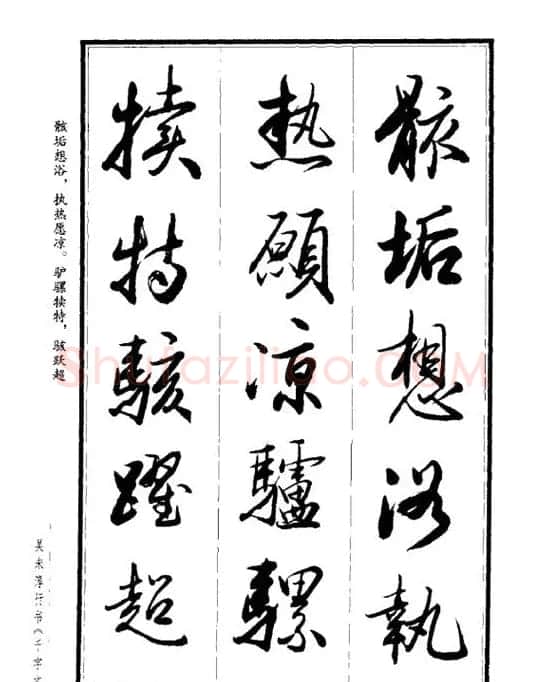 骸垢想浴執
熱願涼驢騾
犢特駭躍超
骸垢想浴，执热愿凉。驴骡犊特，骇跃超
吴未淳行书《千字文
Shufaziliao.COM